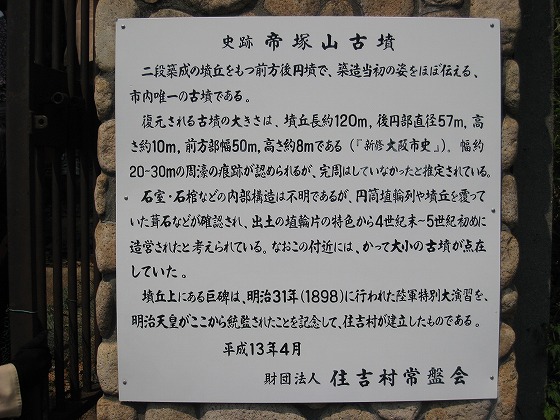 史跡 帝塚山古墳
二段築成の墳丘をもつ前方後円墳で、築造当初の姿をほぼ伝える、
市内唯一の古墳である。
復元される古墳の大きさは、墳丘長約120m,後円部直径57m,高
さ約10m,前方部幅50m,高さ約8mである（『新修 大阪市史』）。幅約
20-30mの周濠の痕跡が認められるが、完周はしていなかったと推定されている。
石室・石棺などの内部構造は不明であるが、円筒埴輪列や墳丘を覆って
いた葺石などが確認され、出土の埴輪片の特色から4世紀末~5世紀初めに
造営されたと考えられている。なおこの付近には、かって大小の古墳が点在
していた。
墳丘上にある巨碑は、明治31年(1898)に行われた陸軍特別大演習を、
明治天皇がここから統監されたことを記念して、住吉村が建立したものである。
平成13年4月
財団法人 住吉村常盤会